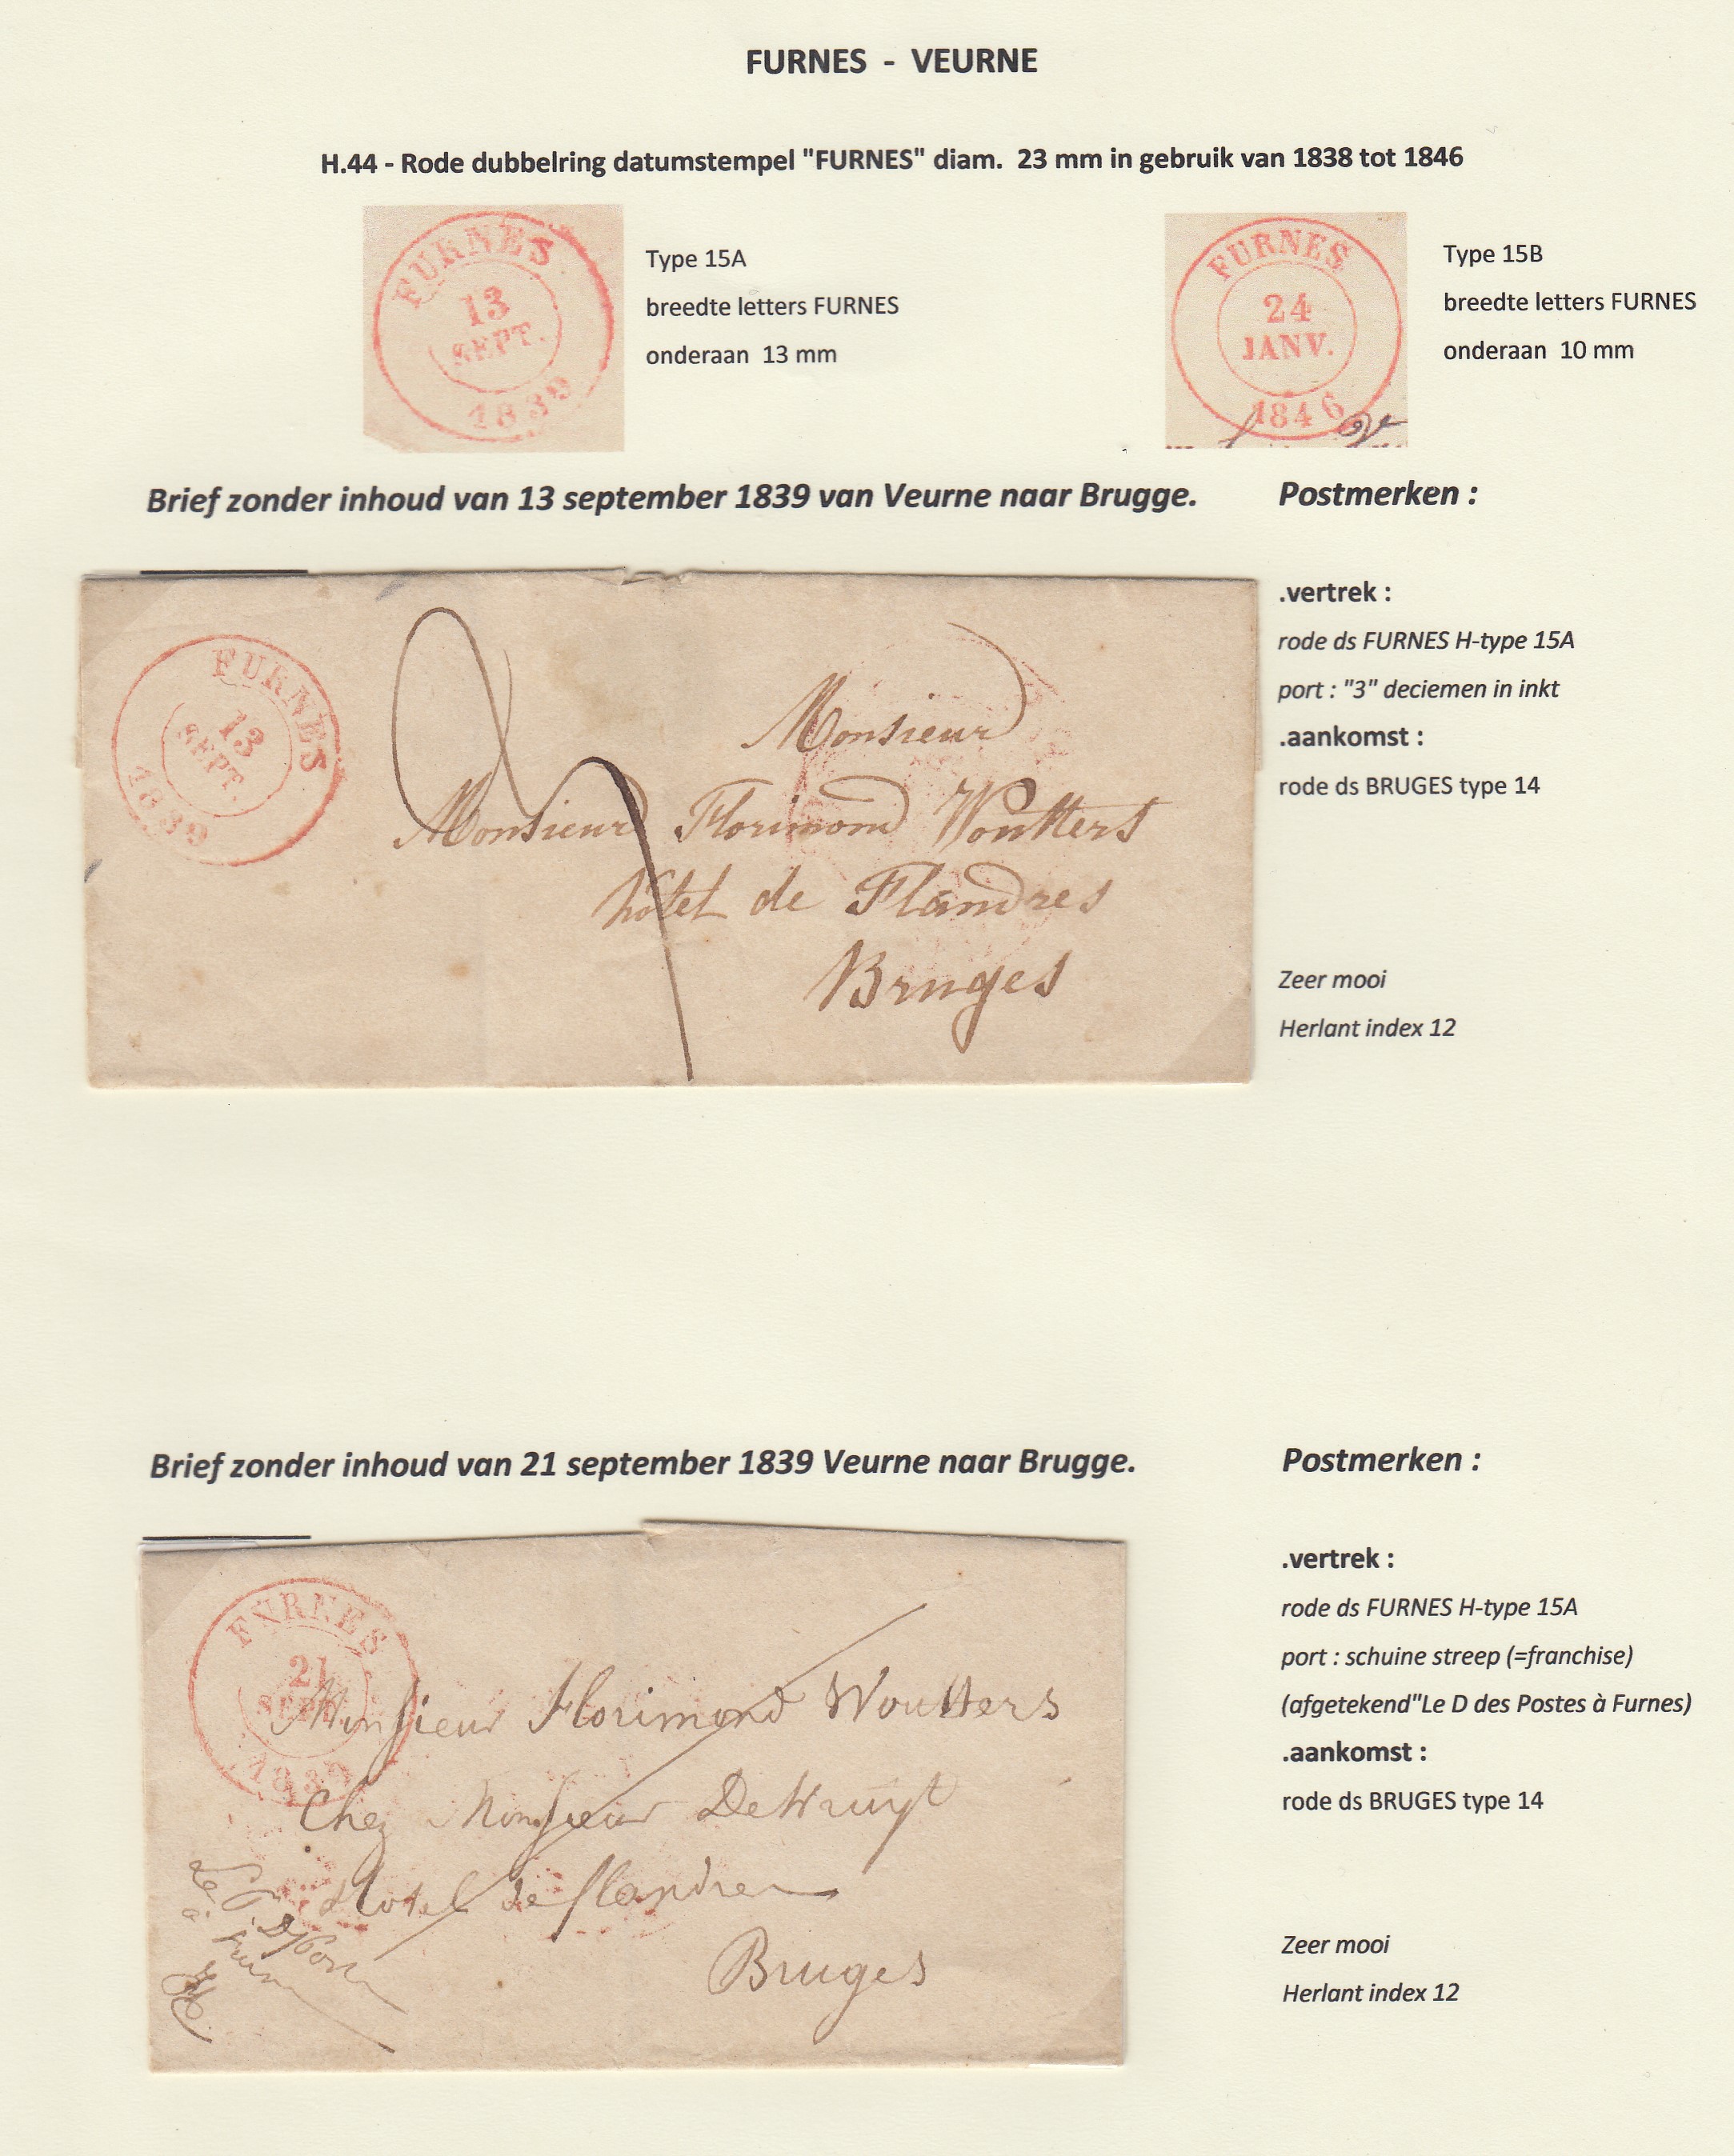 FURNES - VEURNE
H.44 - Rode dubbelring datumstempel "FURNES" diam. 23 mm in gebruik van 1838 tot 1846
FURNES
13
SEPT.
1839
Type 15A
breedte letters FURNES
onderaan 13 mm
FURNES
24
JANV.
1846
Type 15B
breedte letters FURNES
onderaan 10 mm
Brief zonder inhoud van 13 september 1839 van Veurne naar Brugge.
FURNES
13
SEPT.
1839
Monsieur
Monsieur Florimond Woutters
hôtel de Flandres
Bruges
Postmerken :
.vertrek :
rode ds FURNES H-type 15A
port : "3" deciemen in inkt
.aankomst :
rode ds BRUGES type 14
Zeer mooi
Herlant index 12
Brief zonder inhoud van 21 september 1839 Veurne naar Brugge.
FURNES
21
SEPT.
1839
Monsieur Florimond Woutters
Chez Monsieur
Hotel de flandre
Bruges
Le D. Des Postes
à Furnes
Postmerken :
.vertrek :
rode ds FURNES H-type 15A
port : schuine streep (=franchise)
(afgetekend"Le D des Postes à Furnes)
.aankomst :
rode ds BRUGES type 14
Zeer mooi
Herlant index 12